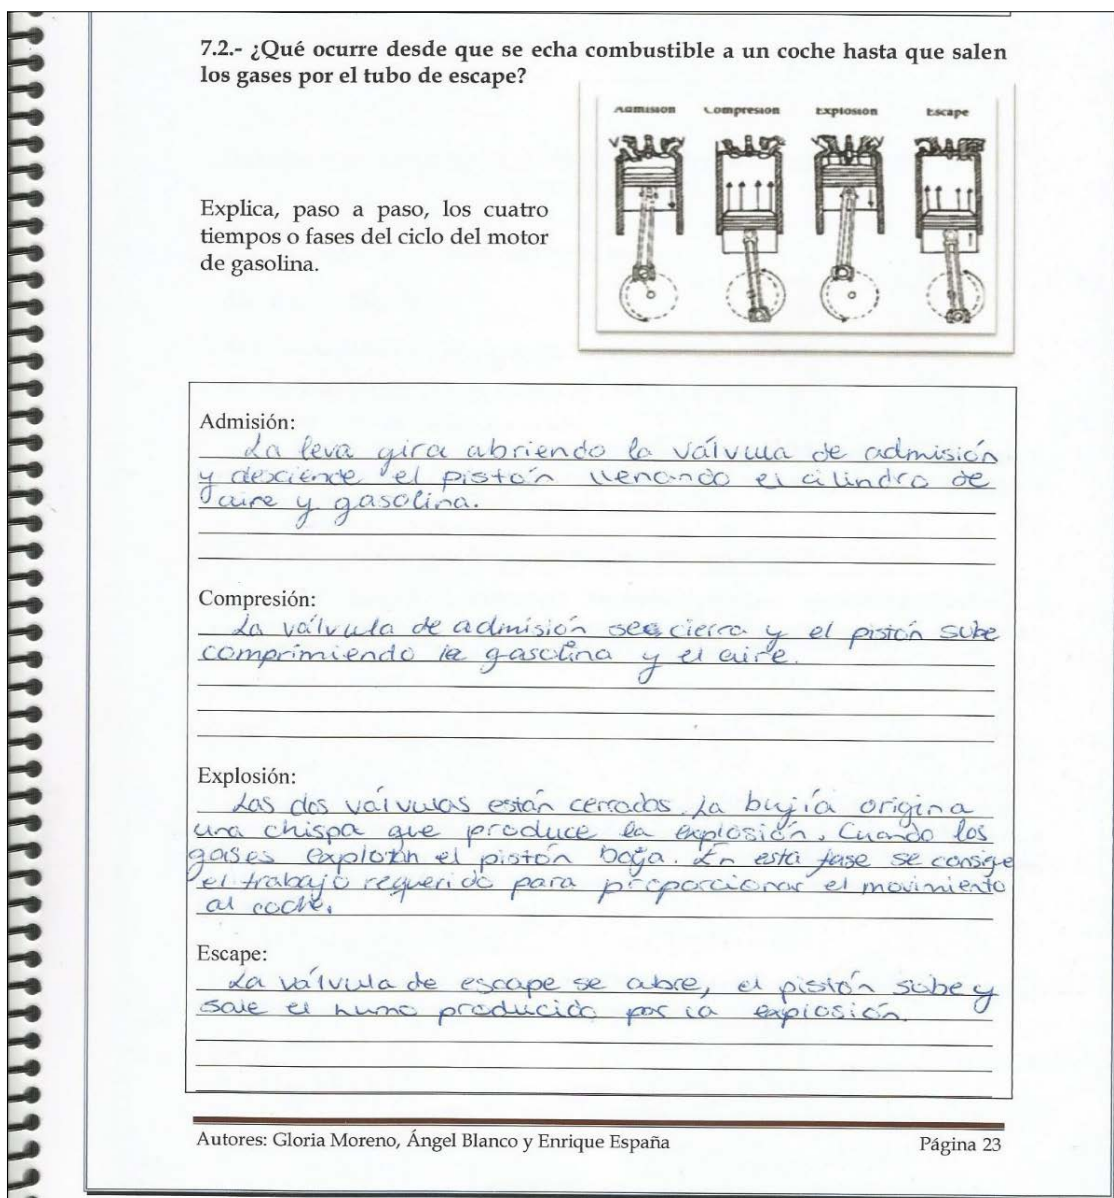 7.2.- ¿Qué ocurre desde que se echa combustible a un coche hasta que salen
los gases por el tubo de escape?
Admisión Compresión Explosión Escape
Explica, paso a paso, los cuatro
tiempos o fases del ciclo del motor
de gasolina.
Admisión:
La leva gira abriendo la válvula de admisión
y desciende el pistón llenando el cilindro de
aire y gasolina.
Compresión:
La válvula de admisión se cierra y el pistón sube
comprimiendo la gasolina y el aire.
Explosión:
Las dos válvulas están cerradas. La bujía origina
una chispa que produce la explosión. Cuando los
gases explotan el pistón baja. En esta fase se consige
el trabajo requerido para proporcionar el movimiento
al coche.
Escape:
La válvula de escape se abre, el pistón sube y
sale el humo producido por la explosión.
Autores: Gloria Moreno, Ángel Blanco y Enrique España Página 23